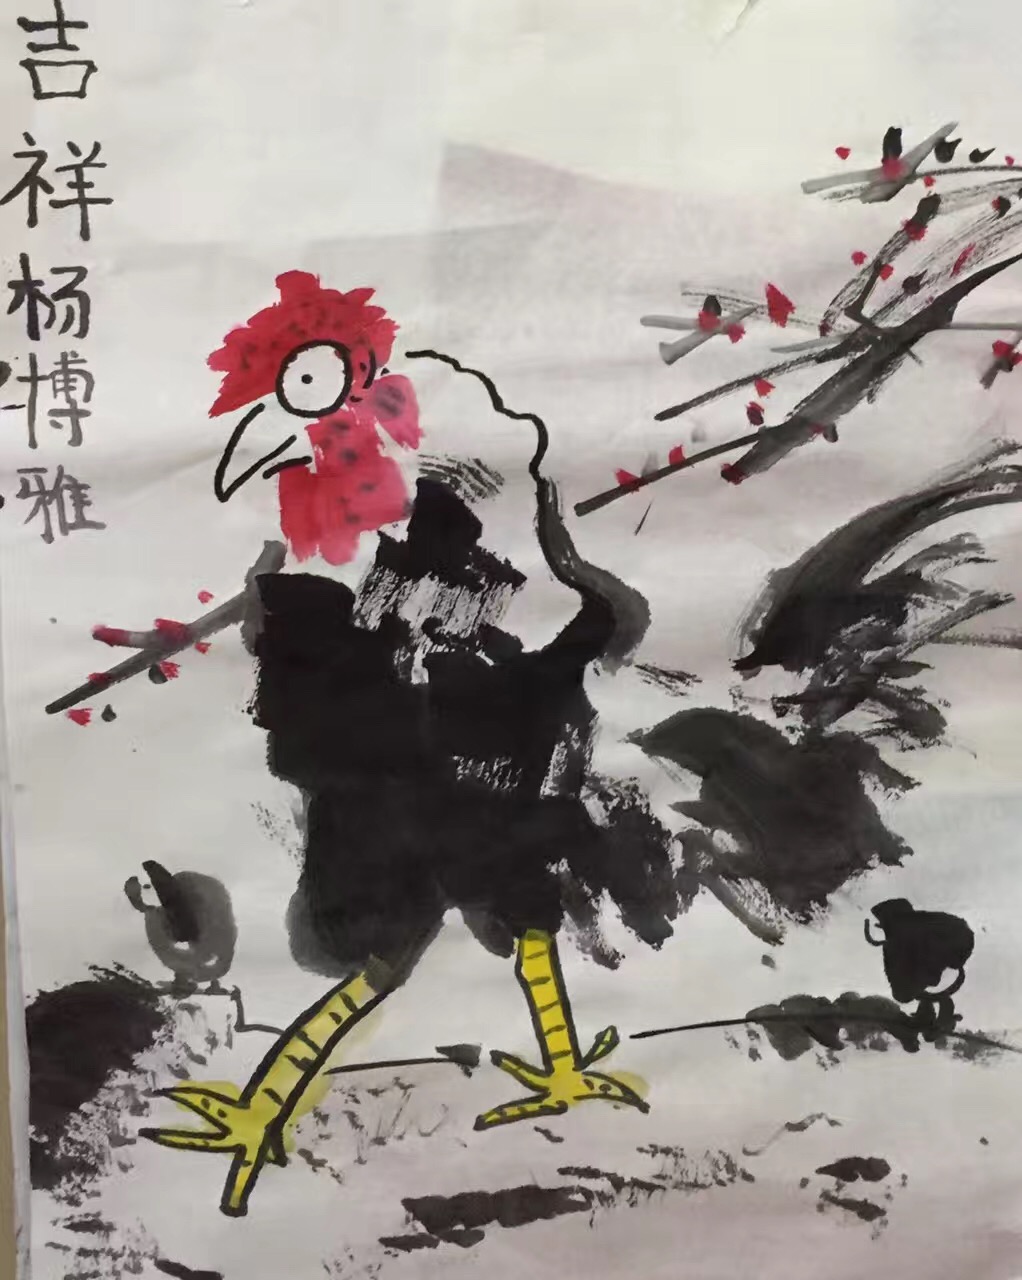 吉祥杨博雅